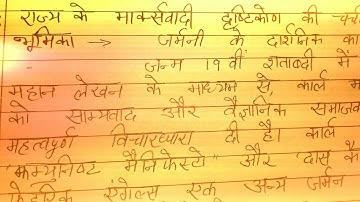 राज्य के मार्क्सवादी दृष्टिकोण की
भूमिका → जर्मनी के दार्शनिक का
जन्म 19 वीं शताब्दी में
महान लेखन के माध्यम से, कार्ल
को साम्यवाद और वैज्ञानिक
महत्वपूर्ण विचारधारा दी है। कार्ल
"कम्युनिष्ट मैनिफेस्टो" और दास
फ्रेडरिक एंगेल्स एक अन्य जर्मन